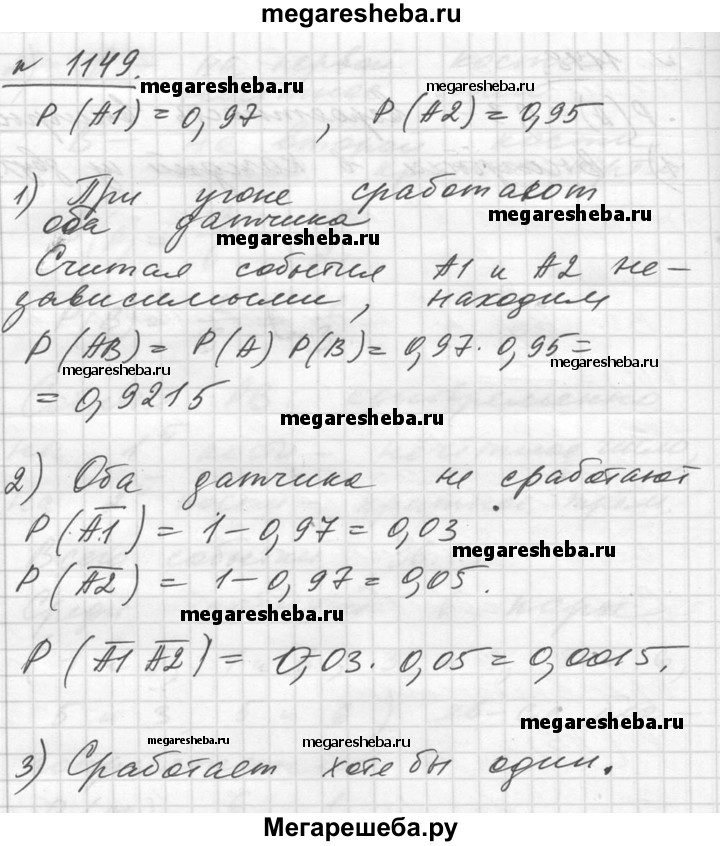 megaresheba.ru
№ 1149.
megaresheba.ru megaresheba.ru
P (A1) = 0,97 , P (A2) = 0,95
1) При угоне сработают
megaresheba.ru
оба датчика
megaresheba.ru
Считая события A1 и A2 не-
зависимыми, находим
P (AB) = P(A) P(B) = 0,97 · 0,95 =
megaresheba.ru megaresheba.ru
= 0,9215
megaresheba.ru
2) Оба датчика не сработают.
P (A̅1̅) = 1 – 0,97 = 0,03
megaresheba.ru
P (A̅2̅) = 1 – 0,97 = 0,05.
megaresheba.ru
P (A̅1̅ A̅2̅) = 0,03 · 0,05 = 0,0015.
megaresheba.ru
megaresheba.ru megaresheba.ru
3) Сработает хоте бы один.
Мегарешеба.ру